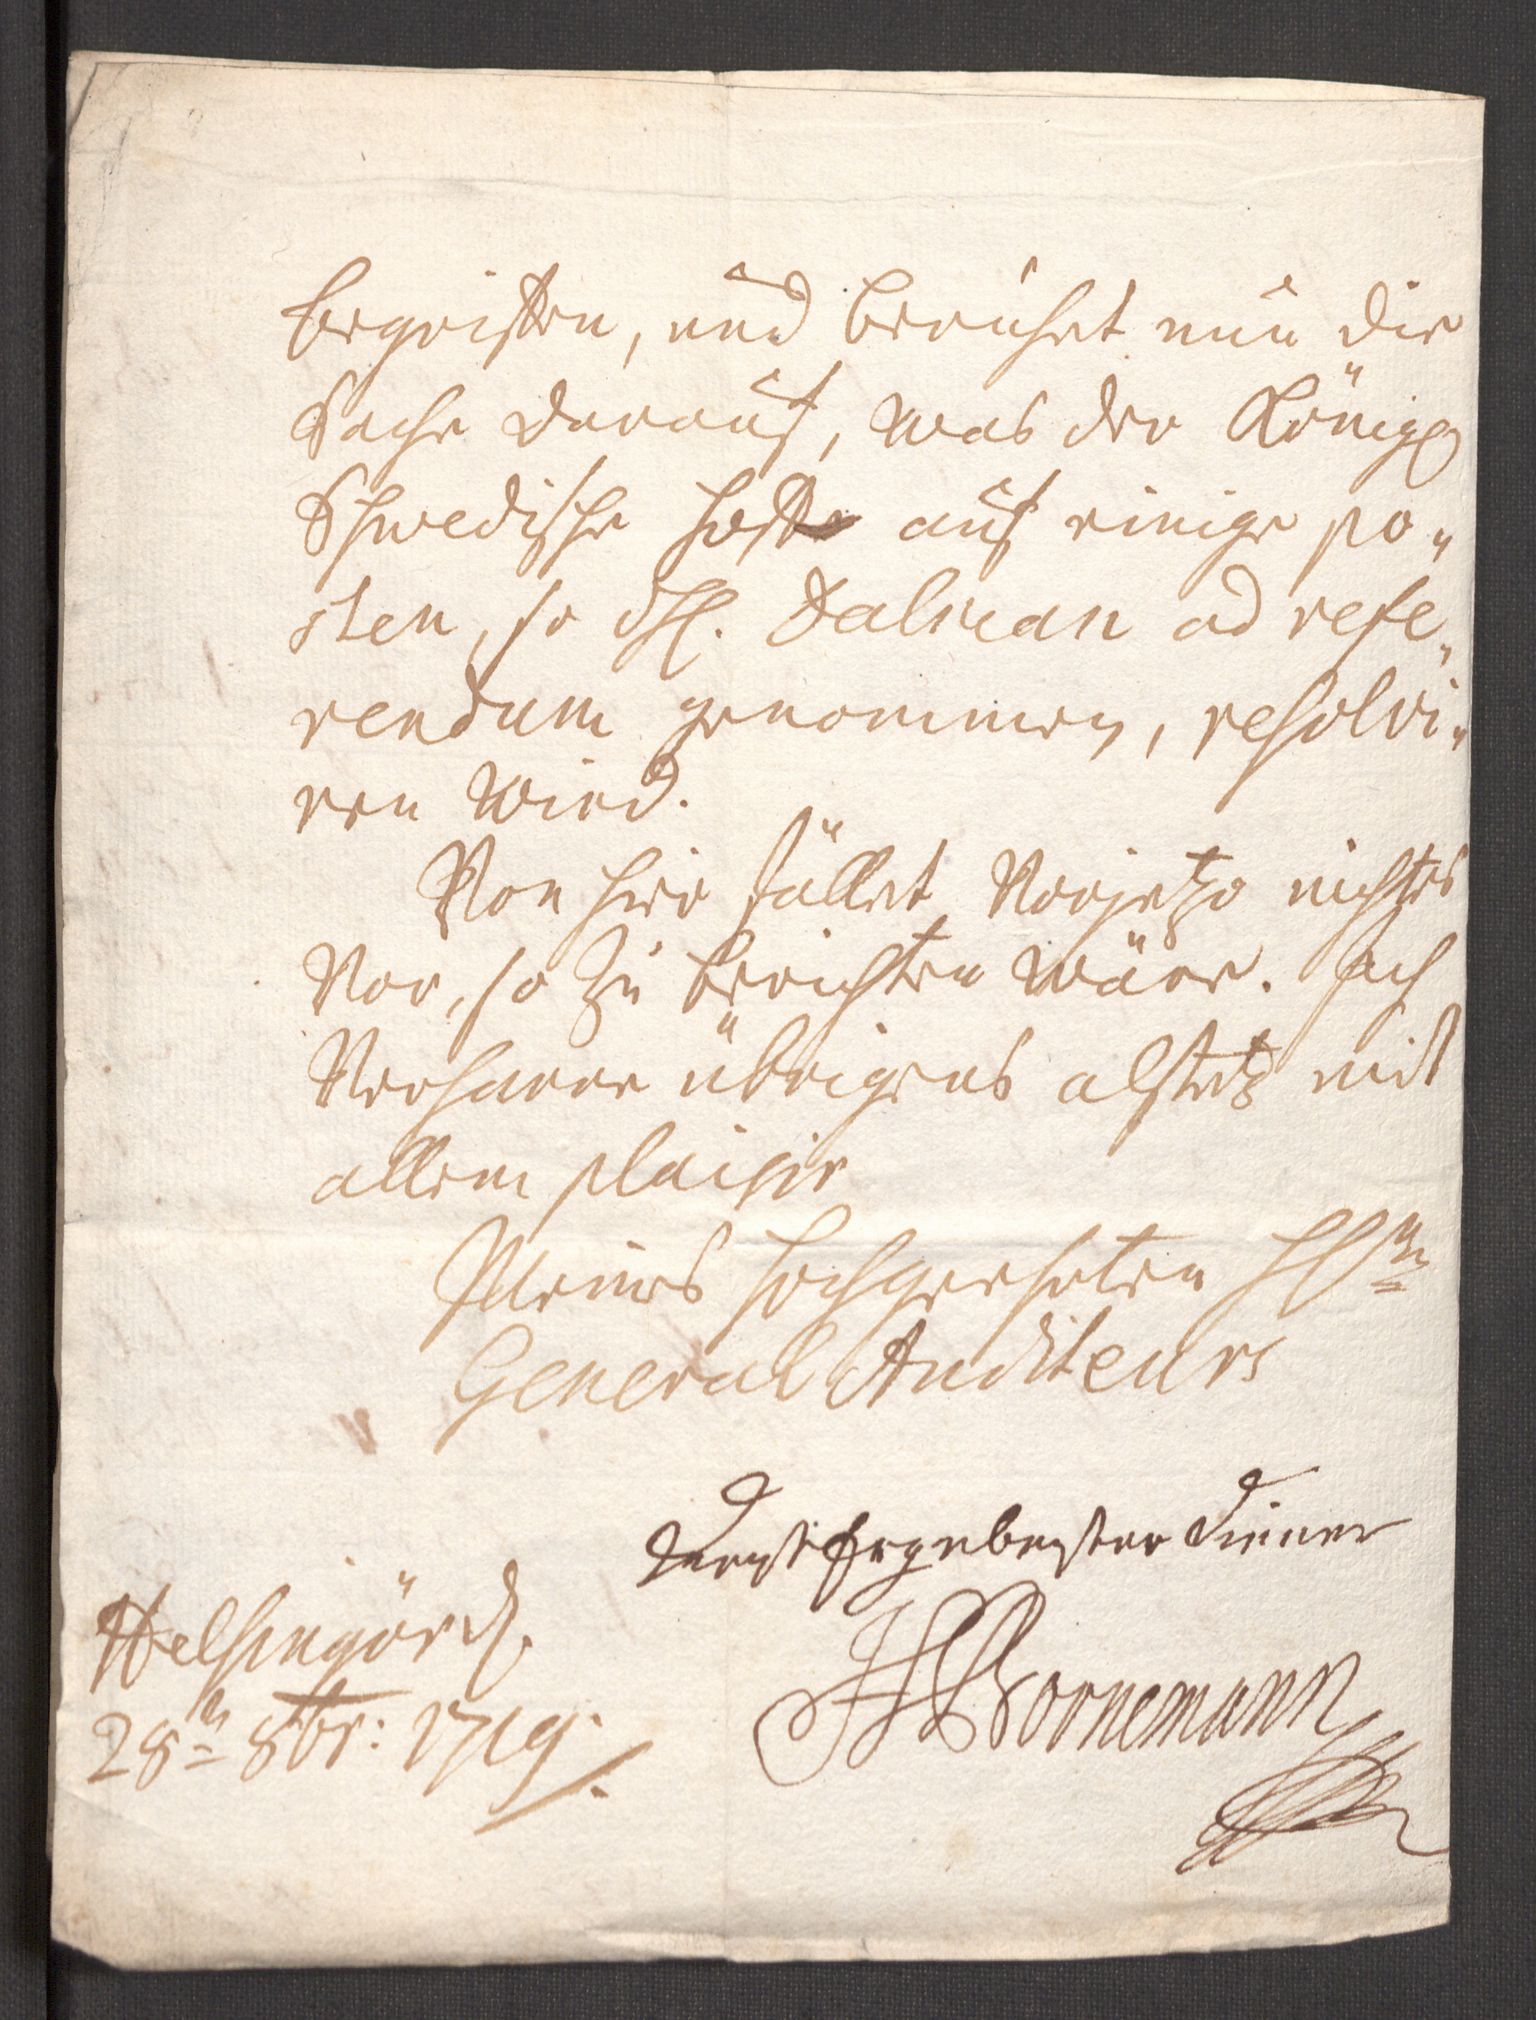 begriffen, und beruhet nun die
Sache darauf, was der Königl.
Schwedische Hoff auf einige po-
sten, so H. Dalman ad refe-
rendum genommen, resolvi-
ren wird.
Von hier fället vorjetzo nichtes
vor, so zu berichten wäre. Ich
verharre übrigens alstetz mit
allem plaisir
Meines hochgeehrten Hrn
General Auditeurs
dienst Ergebenster Diener
Helsingör d.
28ten 8br: 1719.
HBornemann